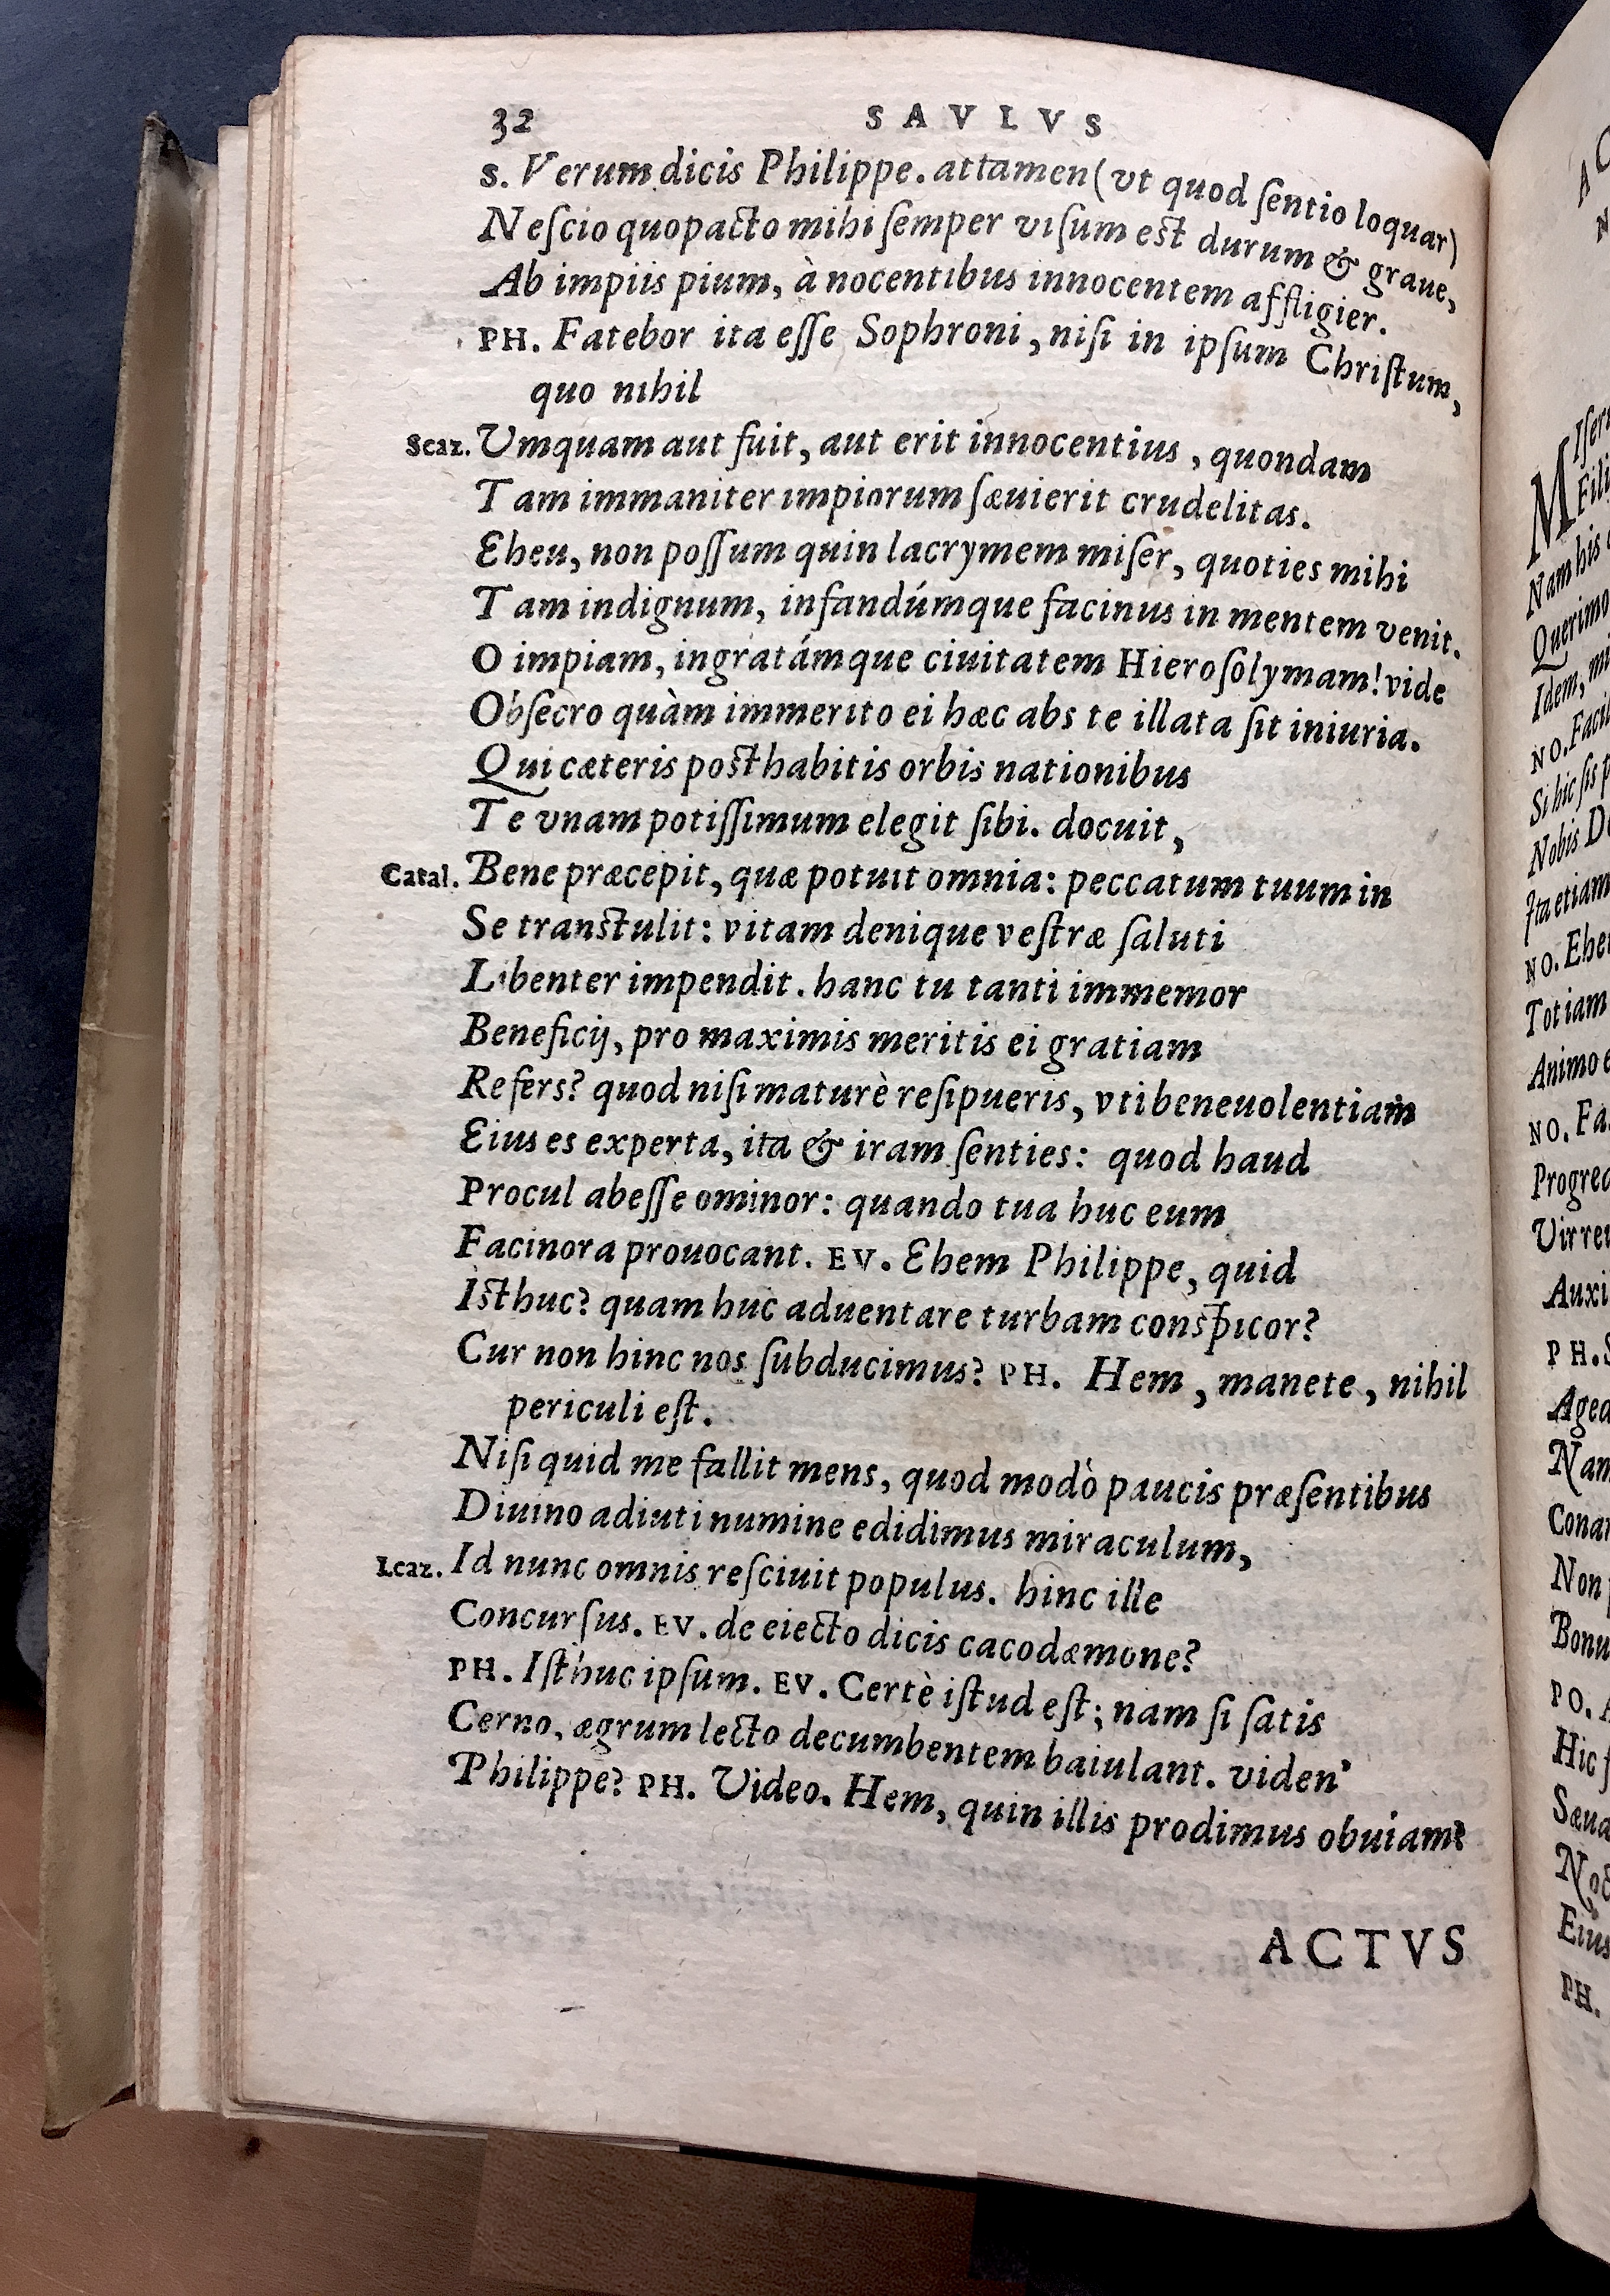 32 SAVLVS
S. Verum dicis Philippe. attamen (vt quod ſentio loquar)
Neſcio quopacto mihi ſemper viſum est durum & graue,
Ab impiis pium, à nocentibus innocentem affligier.
PH. Fatebor ita eſſe Sophroni, niſi in ipſum Chriſtum,
quo nihil
Scaz. Umquam aut fuit, aut erit innocentius, quondam
Tam immaniter impiorum ſæuierit crudelitas.
Eheu, non poſſum quin lacrymem miſer, quoties mihi
Tam indignum, infandúmque facinus in mentem venit.
O impiam, ingratámque ciuitatem Hieroſolymam! vide
Obſecro quàm immerito ei hæc abs te illata ſit iniuria.
Qui cæteris posthabitis orbis nationibus
Te vnam potiſſimum elegit ſibi. docuit,
Catal. Bene præcepit, quæ potuit omnia: peccatum tuum in
Se transtulit: vitam denique veſtræ ſaluti
Libenter impendit. hanc tu tanti immemor
Beneficij, pro maximis meritis ei gratiam
Refers? quod niſi maturè reſipueris, vti beneuolentiam
Eius es experta, ita & iram ſenties: quod haud
Procul abeſſe ominor: quando tua huc eum
Facinora prouocant. EV. Ehem Philippe, quid
Isthuc? quam huc aduentare turbam conspicor?
Cur non hinc nos ſubducimus? PH. Hem, manete, nihil
periculi eſt.
Niſi quid me fallit mens, quod modò paucis præſentibus
Diuino adiuti numine edidimus miraculum,
Lcaz. Id nunc omnis reſciuit populus. hinc ille
Concurſus. EV. de eiecto dicis cacodæmone?
PH. Iſthuc ipſum. EV. Certè iſtud eſt; nam ſi ſatis
Cerno, ægrum lecto decumbentem baiulant. viden'
Philippe? PH. Video. Hem, quin illis prodimus obuiam?
ACTVS